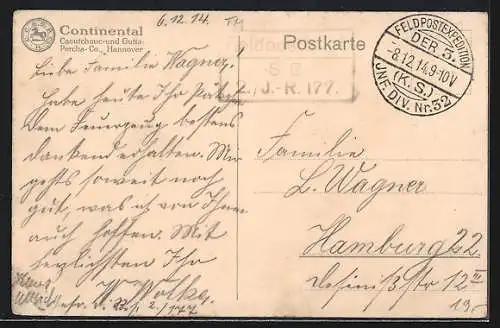 Continental
Caoutchouc- und Gutta-
Percha- Co., Hannover
6.12.14.
Postkarte
S B
2./J.-R. 177.
FELDPOSTEXPEDITION
DER 3.
-8.12.14.9-10V
(K.S.)
JNF. DIV. Nr. 32
Liebe Familie Wagner.
Habe heute Ihr Paket
dem Feuerzeug bestens
dankend erhalten. Mir
gehts soweit noch
gut, was ich von Ihnen
auch hoffen. Mit
herzlichsten Ihr
2./177
Familie
L. Wagner
Hamburg 22
12 III
19.-